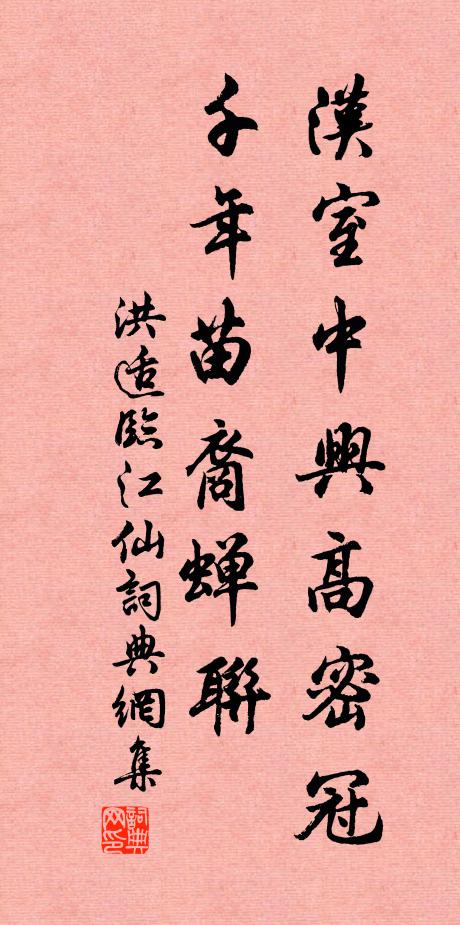 漢室中興高密冠
千年苗裔蝉聯
洪适臨江仙詞典網集
詞典网印